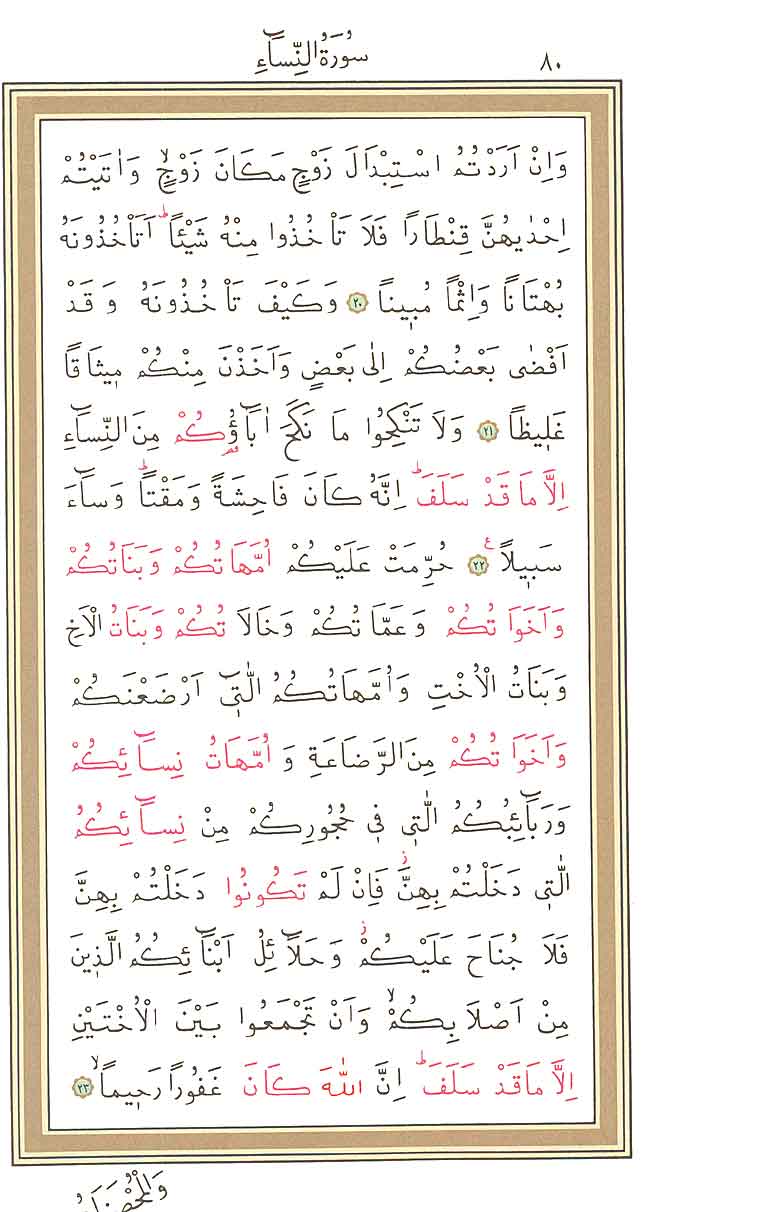 سُورَةُ النِّسَٓاءِ
٨٠
وَاِنْ اَرَدْتُمُ اسْتِبْدَالَ زَوْجٍ مَكَانَ زَوْجٍۙ وَاٰتَيْتُمْ
اِحْدٰيهُنَّ قِنْطَارًا فَلَا تَأْخُذُوا مِنْهُ شَيْـًٔاۜ اَتَأْخُذُونَهُ
بُهْتَانًا وَاِثْمًا مُب۪ينًا ﴿٢٠﴾ وَكَيْفَ تَأْخُذُونَهُ وَقَدْ
اَفْضٰى بَعْضُكُمْ اِلٰى بَعْضٍ وَاَخَذْنَ مِنْكُمْ م۪يثَاقًا
غَل۪يظًا ﴿٢١﴾ وَلَا تَنْكِحُوا مَا نَكَحَ اٰبَٓاؤُ۬كُمْ مِنَ النِّسَٓاءِ
اِلَّا مَا قَدْ سَلَفَۜ اِنَّهُ كَانَ فَاحِشَةً وَمَقْتًاۜ وَسَٓاءَ
سَب۪يلًا ع ﴿٢٢﴾ حُرِّمَتْ عَلَيْكُمْ اُمَّهَاتُكُمْ وَبَنَاتُكُمْ
وَاَخَوَاتُكُمْ وَعَمَّاتُكُمْ وَخَالَاتُكُمْ وَبَنَاتُ الْاَخِ
وَبَنَاتُ الْاُخْتِ وَاُمَّهَاتُكُمُ الّٰت۪ٓي اَرْضَعْنَكُمْ
وَاَخَوَاتُكُمْ مِنَ الرَّضَاعَةِ وَاُمَّهَاتُ نِسَٓائِكُمْ
وَرَبَٓائِبُكُمُ الّٰت۪ي ف۪ي حُجُورِكُمْ مِنْ نِسَٓائِكُمُ
الّٰت۪ي دَخَلْتُمْ بِهِنَّۘ فَاِنْ لَمْ تَكُونُوا دَخَلْتُمْ بِهِنَّ
فَلَا جُنَاحَ عَلَيْكُمْۘ وَحَلَٓائِلُ اَبْنَٓائِكُمُ الَّذ۪ينَ
مِنْ اَصْلَابِكُمْۙ وَاَنْ تَجْمَعُوا بَيْنَ الْاُخْتَيْنِ
اِلَّا مَا قَدْ سَلَفَۜ اِنَّ اللّٰهَ كَانَ غَفُورًا رَح۪يمًاۙ ﴿٢٣﴾